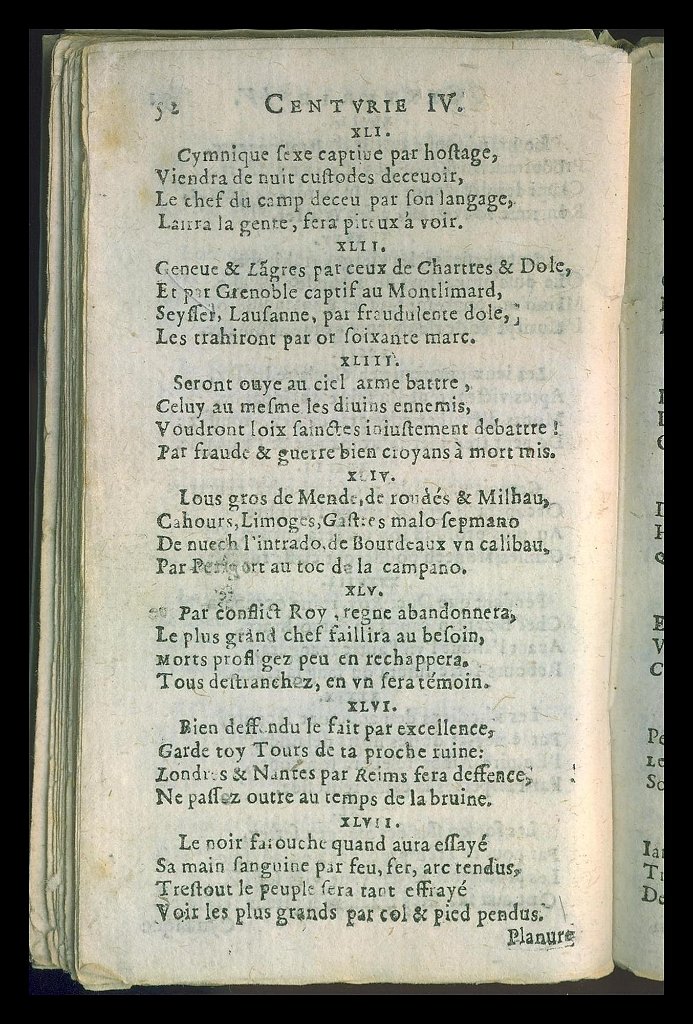 52 CENTVRIE IV.
XLI.
Cymnique ſexe captiue par hoſtage,
Viendra de nuit cuſtodes deceuoir,
Le chef du camp deceu par ſon langage,
Lairra la gente, fera piteux à voir.
XLII.
Geneue & Lãgres par ceux de Chartres & Dole,
Et par Grenoble captif au Montlimard,
Seyſſel, Lauſanne, par fraudulente dole,
Les trahiront par or ſoixante marc.
XLIII.
Seront ouye au ciel arme battre,
Celuy au meſme les diuins ennemis,
Voudront loix ſainctes iniuſtement debattre !
Par fraude & guerre bien croyans à mort mis.
XLIV.
Lous gros de Mende, de roudés & Milhau,
Cahours, Limoges, Gaſtres malo ſepmano
De nuech l'intrado, de Bourdeaux vn calibau,
Par Perigort au toc de la campano.
XLV.
Par conflict Roy, regne abandonnera,
Le plus grand chef faillira au beſoin,
Morts profligez peu en rechappera.
Tous deſtranchez, en vn ſera témoin.
XLVI.
Bien deffendu le fait par excellence,
Garde toy Tours de ta proche ruine:
Londres & Nantes par Reims fera deffence,
Ne paſſez outre au temps de la bruine.
XLVII.
Le noir farouche quand aura eſſayé
Sa main ſanguine par feu, fer, arc tendus,
Treſtout le peuple ſera tant effrayé
Voir les plus grands par col & pied pendus.
Planure